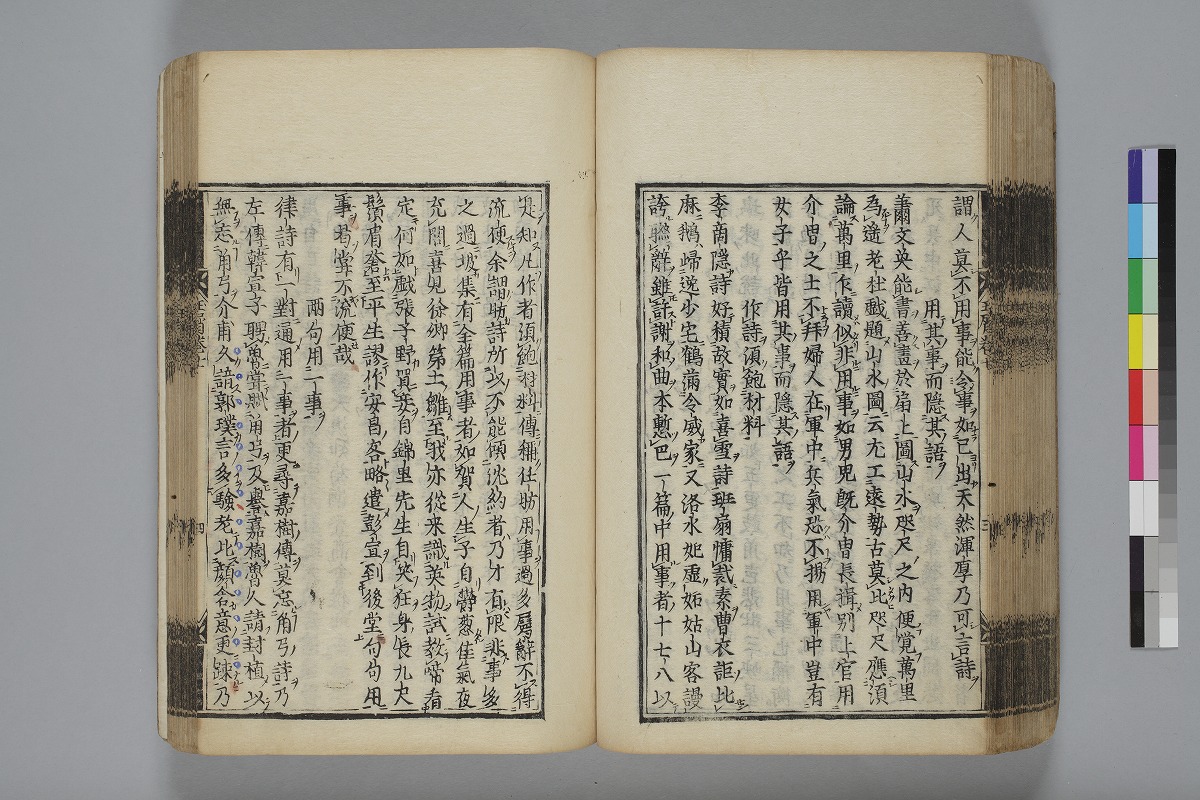 謂人莫不用事能令事如己出天然渾厚乃可言詩
用其事而隱其語
蕭文奐能書善畫於扇上圖山水咫尺之內便覺萬里
為遙老杜戲題山水圖云尤工遠勢古莫比咫尺應須
論萬里作讀似非用事如男兒既介胄長揖別上官用
介胄之士不拜婦人在軍中兵氣恐不揚用軍中豈有
女子乎皆用其事而隱其語
作詩須飽材料
李商隱詩好積故實如喜雪詩班扇慵裁素曹衣詎比
麻鵝歸逸少宅鶴滿令威家又洛水妃虛妬姑山客謾
誇聯辭雖許謝和曲本慙巴一篇中用事者十七八以
是知凡作者須飽材料傳稱任昉用事過多屬辭不得
流便余謂昉詩所以不能傾沈約者乃才有限非事多
之過坡集有全篇用事者如賀人生子自欝葱佳氣夜
充閭喜見徐卿第二雛至我亦從來識英物試教啼看
定何如戲張子野買妾自錦里先生自笑狂身長九尺
鬢眉蒼至平生謬作安昌客略遣彭宣到後堂句句用
事者曷嘗不流便哉
兩句用二事
律詩有一對通用一事者更尋嘉樹傳莫忘角弓詩乃
左傳韓宣子聘魯嘗賦角弓及譽嘉樹魯人請封植以
無忘角弓介甫久諳郭璞言多驗老比顏含意更疎乃